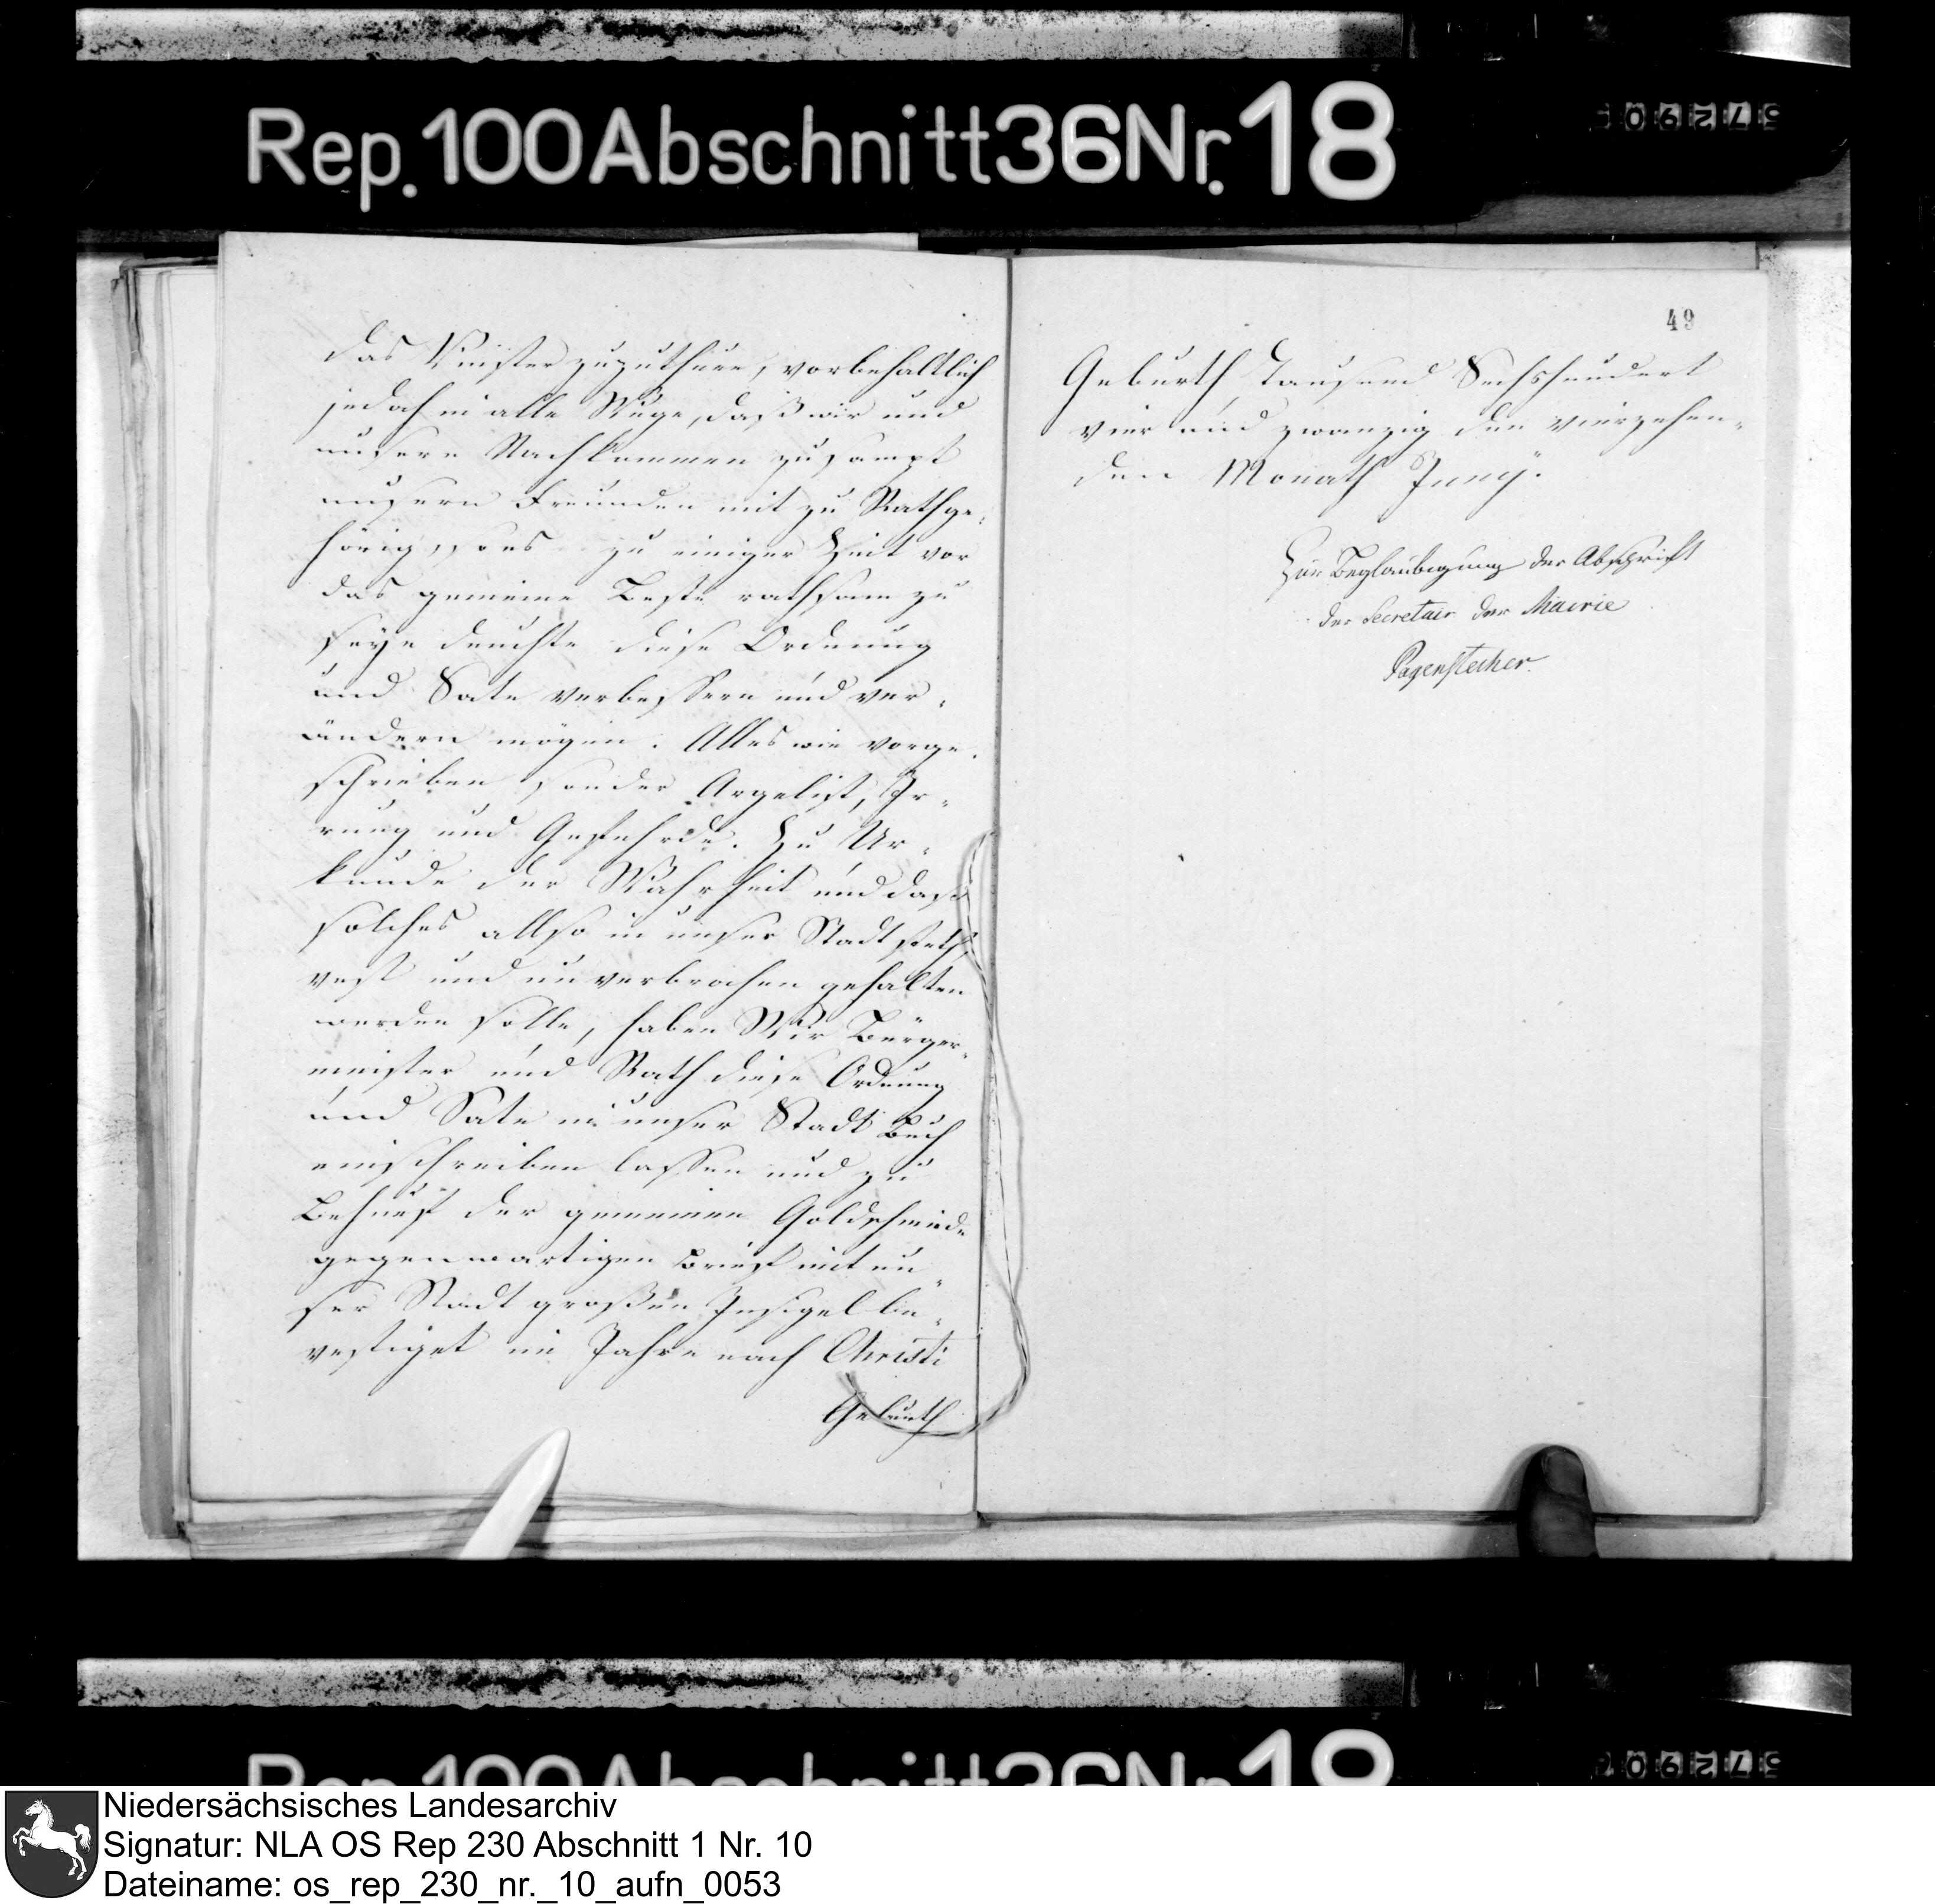 Rep. 100 Abschnitt 36 Nr. 18
das Meister zuzuthuen, vorbehaltlich
jedoch in alle Wege, daß wir und
unsere Nachkommen zusampt
unsern Freunden mit zu Rathge-
hörig, so es zu einiger Zeit vor
das gemeine Beste rathsam zu
seyn deuchte diese Ordnung
und Sate verbessern und ver-
ändern mögen. Alles wie vorge-
schrieben sonder Argelist, Ir-
rung und Gefehrde. Zu Ur-
kunde der Wahrheit und daß
solches allso in unser Stadt steth
vest und unverbrochen gehalten
werden solle, haben Wir Bürger-
meister und Rath diese Ordnung
und Sate in unser Stadt Buch
einschreiben lassen und zu
Behuef der gemeinen Goldschmiede
gegenwartigen Brief mit un-
ser Stadt großen Insigel be-
vestiget im Jahre nach Christi
Geburth
49
Geburth Tausend Sechshundert
vier und zwanzig den vierzehen-
den Monath Juny.
Zur Beglaubigung der Abschrift
der Secretair der Mairie
Pagenstecher.
Niedersächsisches Landesarchiv
Signatur: NLA OS Rep 230 Abschnitt 1 Nr. 10
Dateiname: os_rep_230_nr._10_aufn_0053